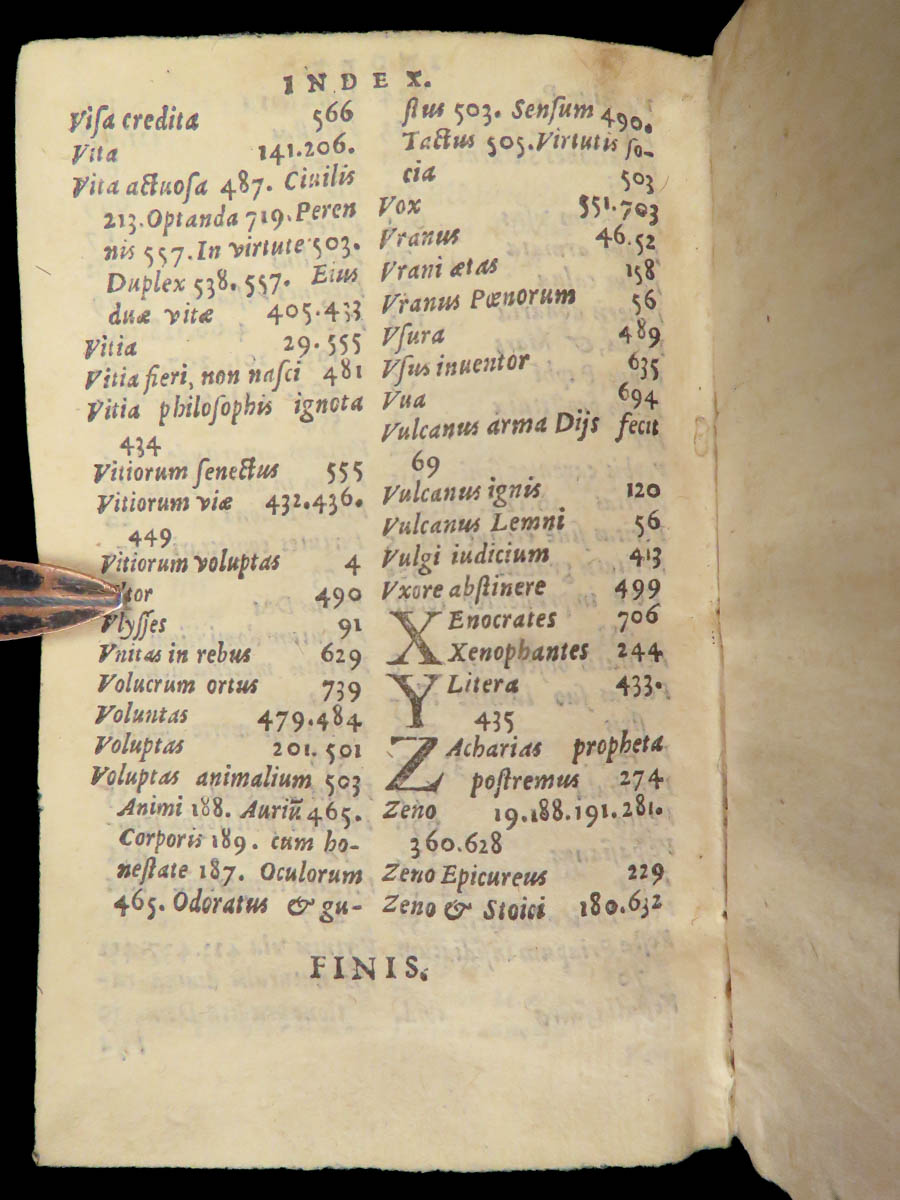 INDEX.
Viſa credita 566
Vita 141.206.
Vita actuoſa 487. Ciuilis
213. Optanda 719. Peren
nis 557. In virtute 503.
Duplex 538. 557. Eius
duæ vitæ 405.433
Vitia 29.555
Vitia fieri, non naſci 481
Vitia philoſophis ignota
434
Vitiorum ſenectus 555
Vitiorum viæ 432.436.
449
Vitiorum voluptas 4
490
Vlyſſes 91
Vnitas in rebus 629
Volucrum ortus 739
Voluntas 479.484
Voluptas 201. 501
Voluptas animalium 503
Animi 188. Auriū 465.
Corporis 189. cum ho-
neſtate 187. Oculorum
465. Odoratus & gu-
ſtus 503. Senſum 490.
Tactus 505. Virtutis ſo-
cia 503
Vox 551.703
Vranus 46.52
Vrani ætas 158
Vranus Pœnorum 56
Vſura 489
Vſus inuentor 635
Vua 694
Vulcanus arma Dijs fecit
69
Vulcanus ignis 120
Vulcanus Lemni 56
Vulgi iudicium 413
Vxore abſtinere 499
XEnocrates 706
Xenophantes 244
Y Litera 433.
435
ZAcharias propheta
poſtremus 274
Zeno 19.188.191.281.
360.628
Zeno Epicureus 229
Zeno & Stoici 180.632
FINIS.